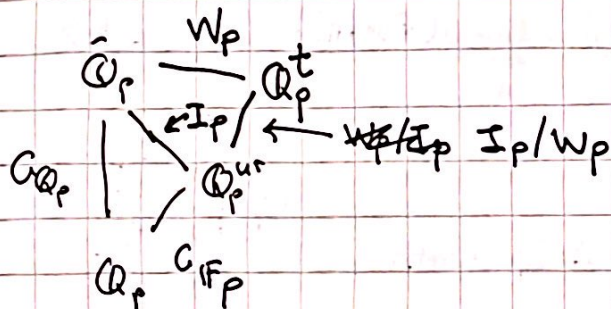 W_p
Q̂_p Q_p^t
I_p W_p/I_p I_p/W_p
G_{Q_p} Q_p^{ur}
Q_p G_{F_p}